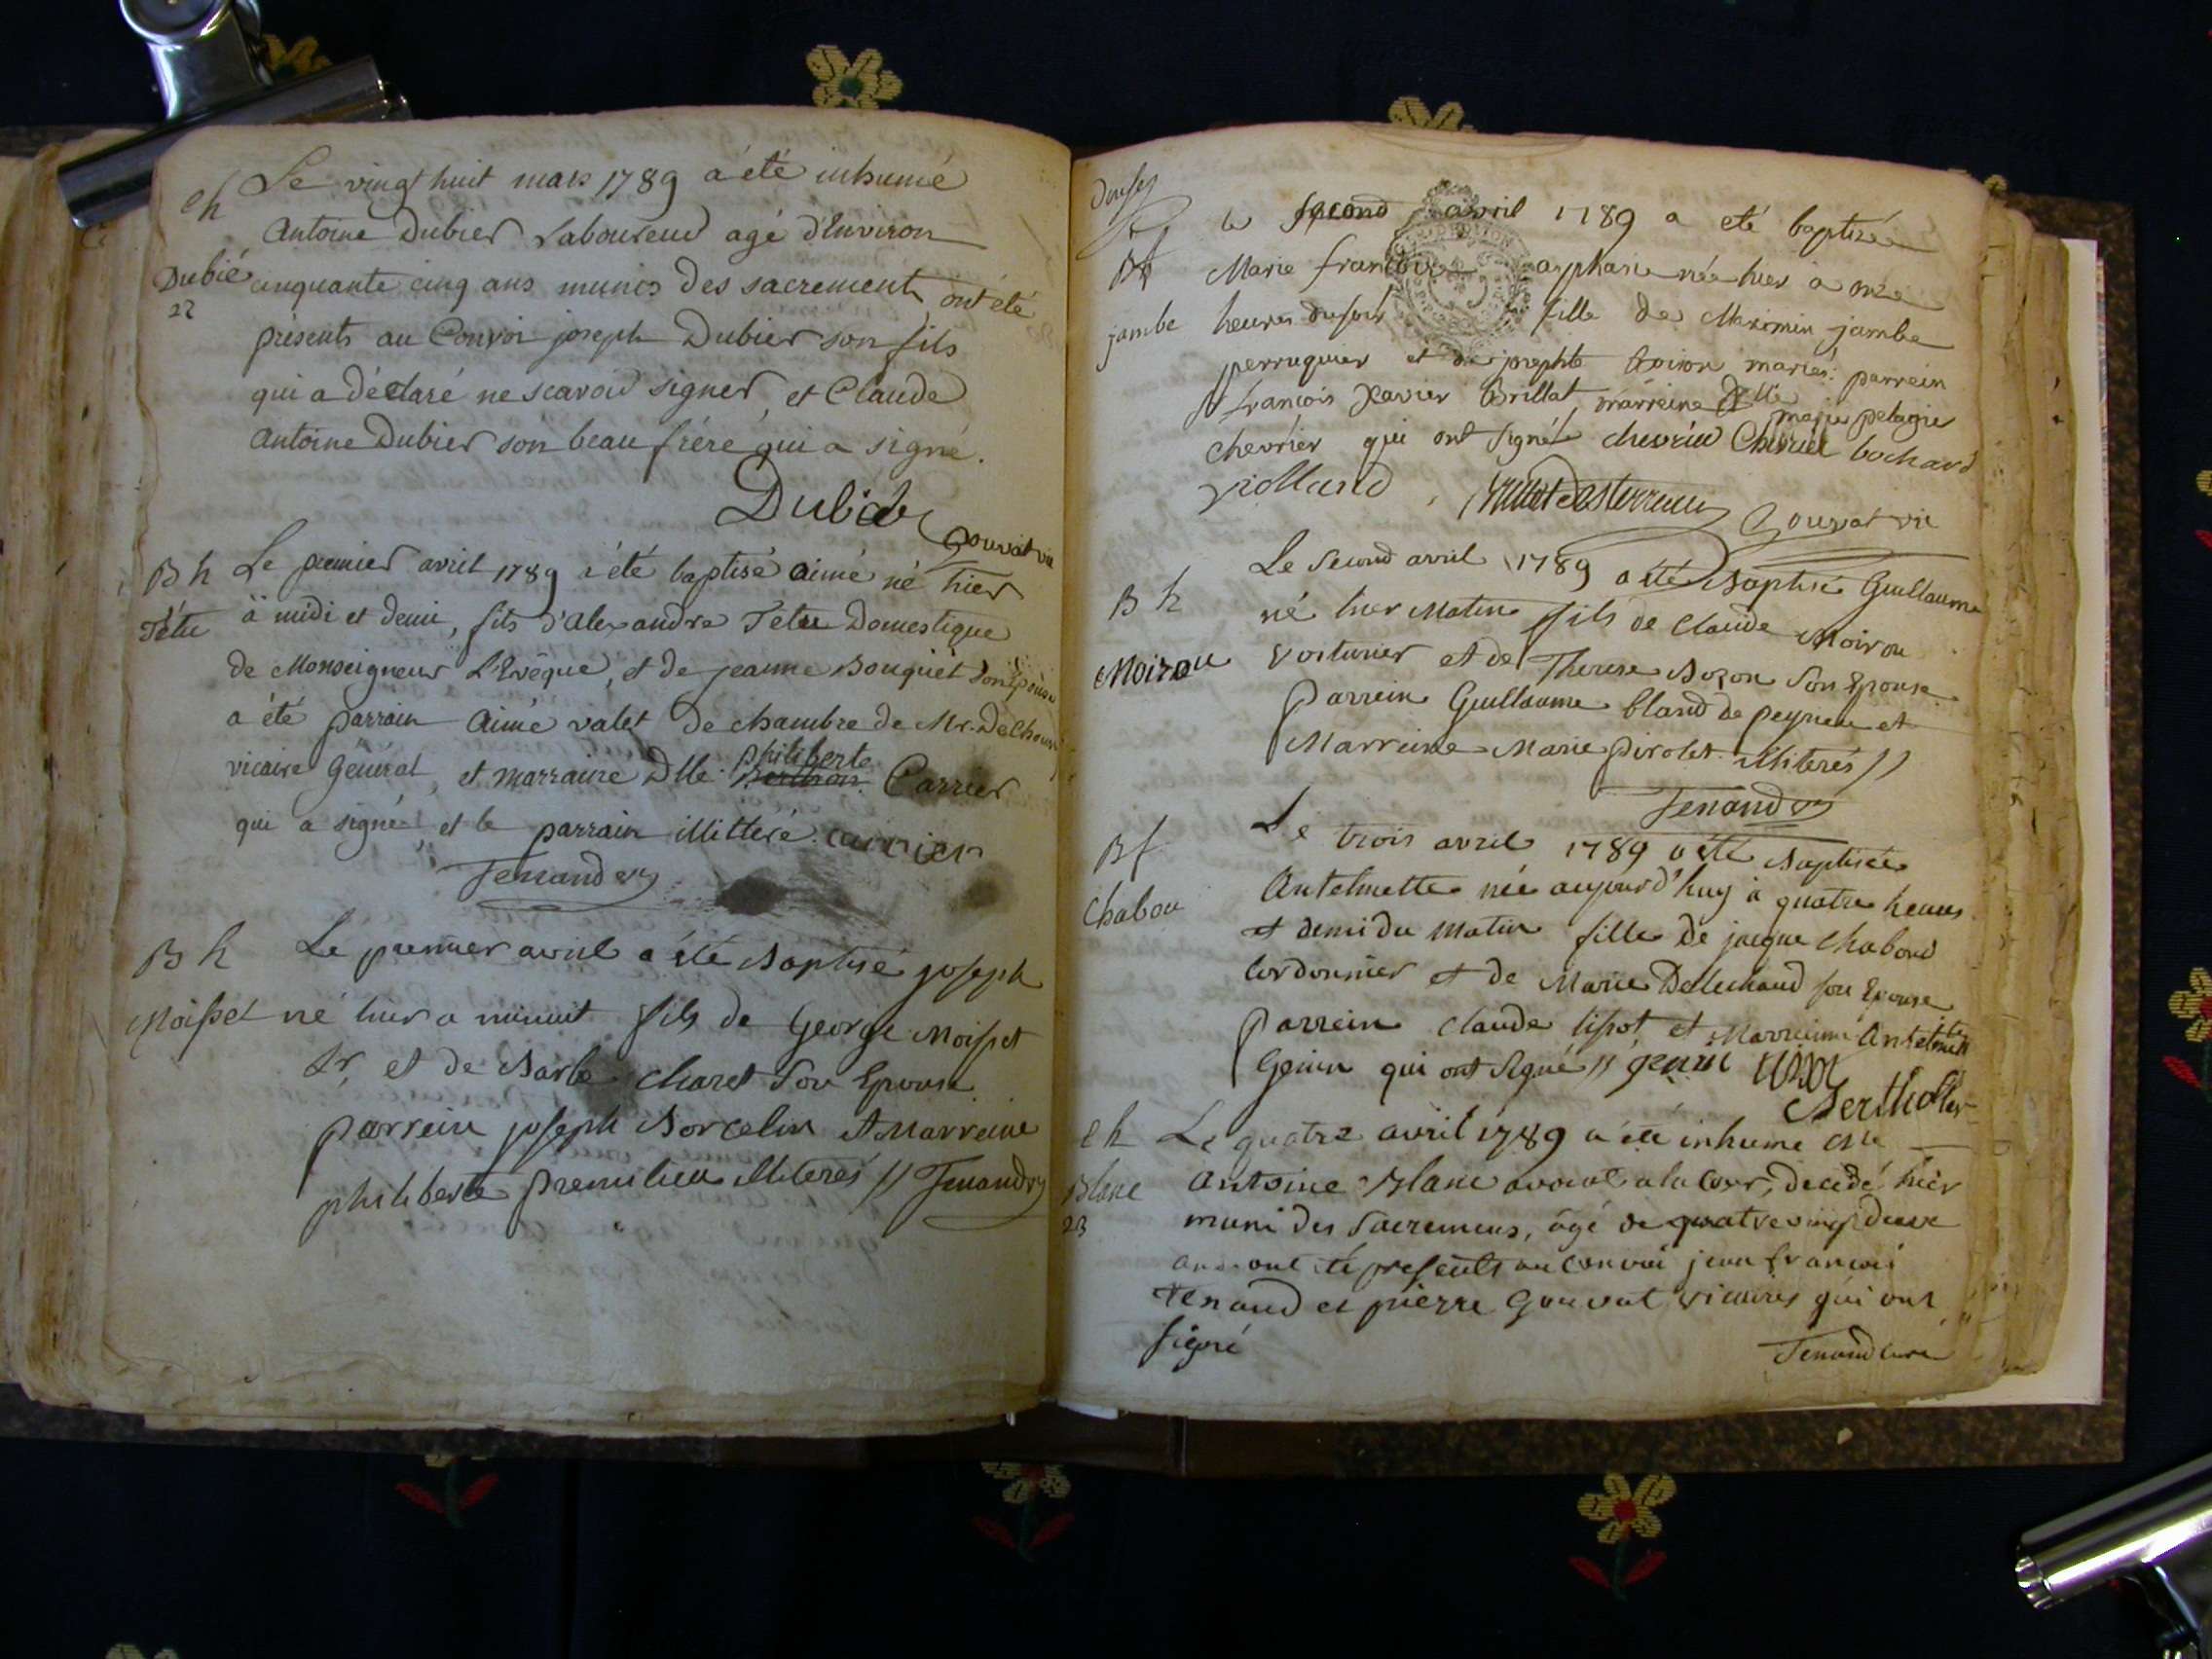 Eh Le vingt huit mars 1789 a été inhumé
Antoine Dubier Laboureur agé d'Environ
Dubié cinquante cinq ans munis des sacrements, ont été
22
présents au Convoi joseph Dubier son fils
qui a déclaré ne scavoir signer, et Claude
Antoine Dubier son beau frére qui a signé.
Dubié
Gouvat vic
B h Le premier avril 1789 a été baptisé aimé né hier
Tétu à midi et demi, fils d'alexandre Tetu Domestique
de Monseigneur L'Evêque, et de jeanne Bouquet son Epouse
a été parrain aimé valet de chambre de Mr. De
philiberte
vicaire Général, et marraine Dlle Carrier
qui a signé et le parrain illitteré. carrier
Tenand vic
B h Le premier avril a été Baptisé joseph
Moisset né hier a minuit fils de George Moisset
Sr. et de Barbe charet Son Epouse
parrein joseph Borcelin et Marreine
philiberte premilieu illiterés // Tenand vic
Douse
le second avril 1789 a eté baptisée
Bf Marie françoise née hier a onze
jambe heures du soir fille de Maximin jambe
perruquier et de josephte mariés: parrein
Sr françois Xavier Brillat, marreine Dlle marie pelagie
chevrier qui ont signé chevrier Chevrier bochard
violland Gouvat vic
Le Second avril 1789 a été Baptisé Guillaume
B h né hier Matin fils de Claude Moiron
Moiron voiturier et de Therese Bozon Son Epouse
parrein Guillaume bland de peyrieu et
Marreine Marie pirolet illiterés //
Tenand vic
Bf Le trois avril 1789 a été Baptisée
Chabou Antelmette née aujourd'huy à quatre heures
et demi du Matin fille de jacque Chaboud
Cordonnier et de Marie Delechaud son Epouse
parrein Claude lissot et Marreine Antelmette
Genin qui ont Signé // genin lissot
Bertholler
Eh Le quatre avril 1789 a été inhumé
Blanc Antoine Blanc avocat a la cour, decédé hier
23 muni des sacremens, âgé de quatre vingt deux
ans ont été presents au convoi jean françois
Tenand et pierre Gouvat vicaires qui ont
signé
Tenand